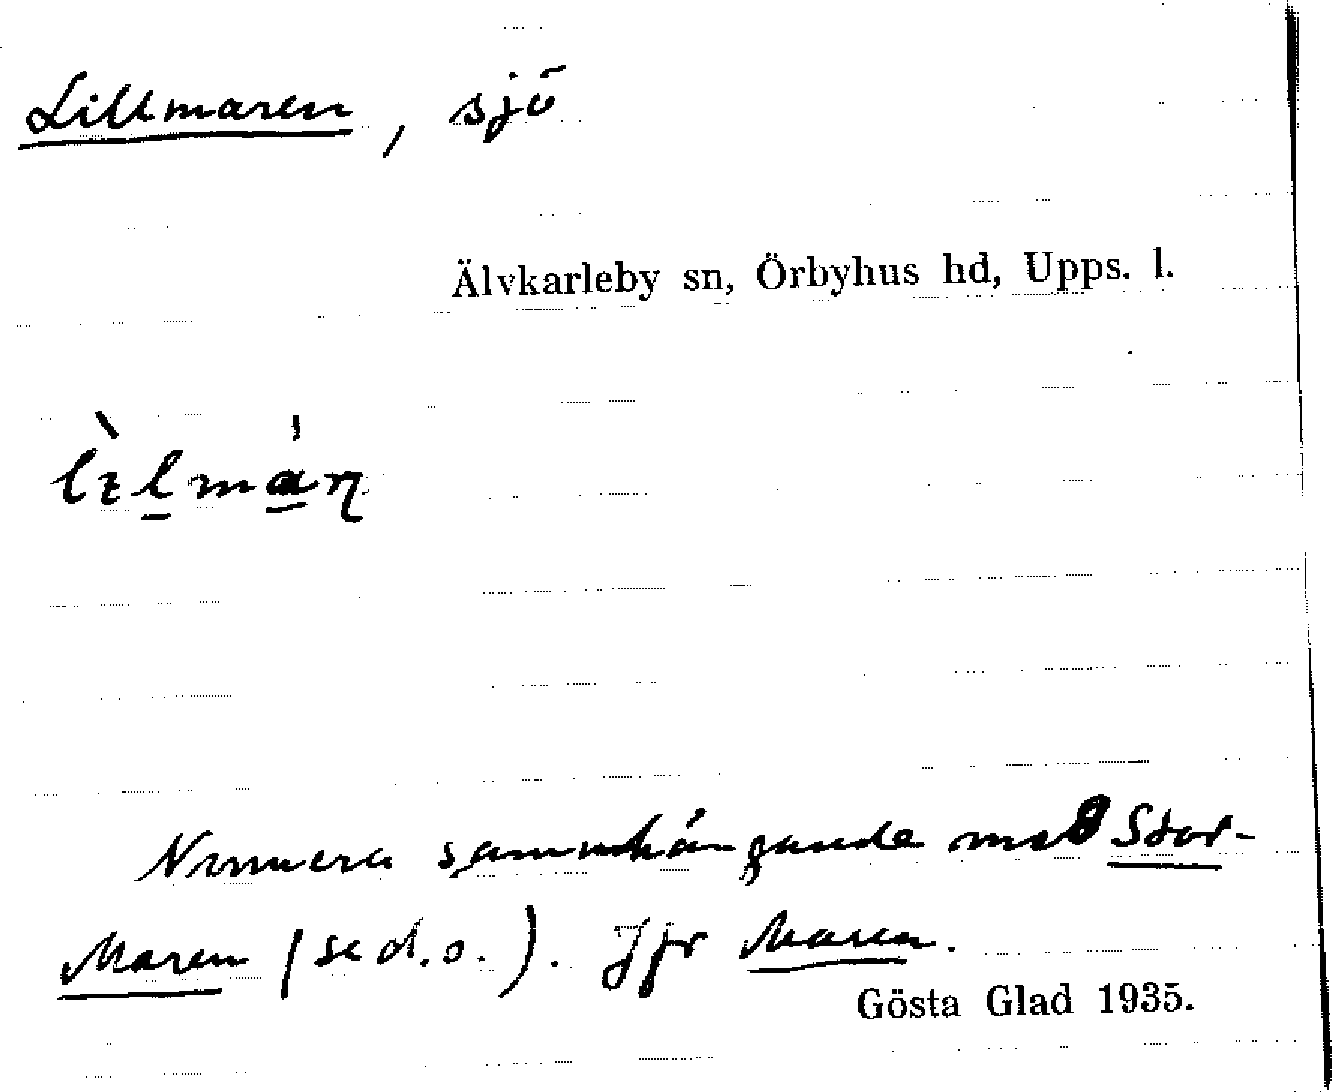 Lillmaren, sjö
Älvkarleby sn, Örbyhus hd, Upps. l.
Numera sammanhängande med Stor-
Maren (se d.o.). Jfr Maren.
Gösta Glad 1935.